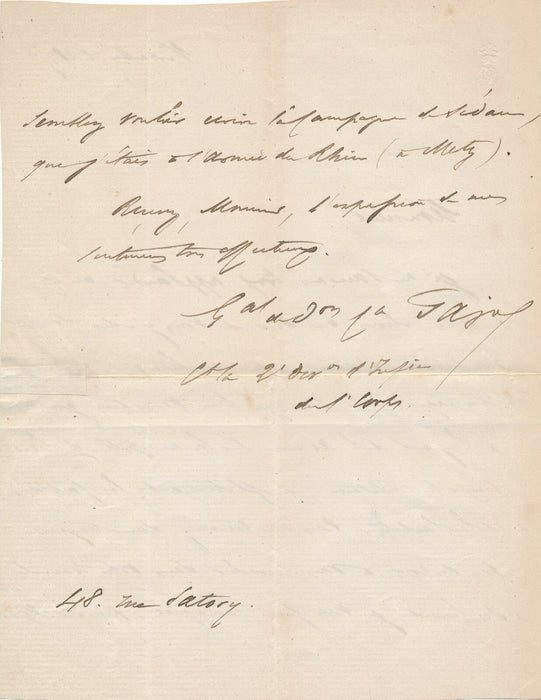 semblez vouloir écrire la Campagne de Sédan,
que j'étais à l'armée du Rhin (à Metz).
Recevez, Monsieur, l'expression de mes
sentiments très affectueux.
Gal de Don Cte Pajol
Ct la 2e Divon d'Infie
du 1er Corps.
48. rue Satory.